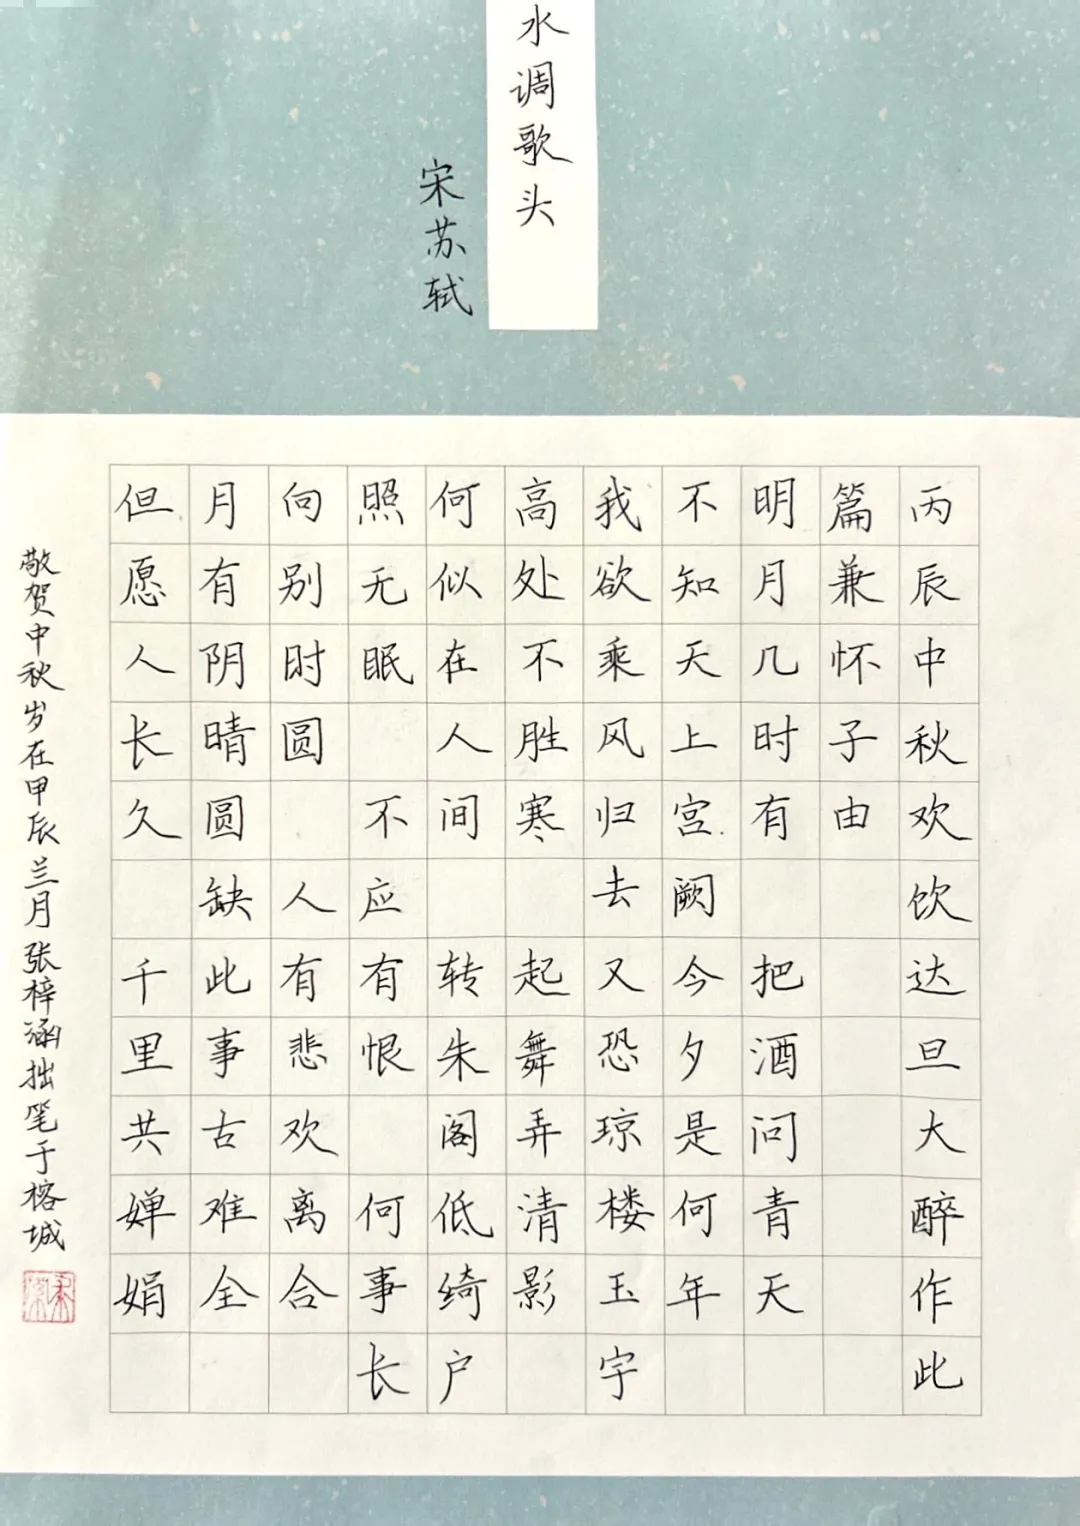 水调歌头
宋苏轼
丙辰中秋欢饮达旦大醉作此
篇兼怀子由
明月几时有 把酒问青天
不知天上宫阙 今夕是何年
我欲乘风归去 又恐琼楼玉宇
高处不胜寒 起舞弄清影
何似在人间 转朱阁低绮户
照无眠 不应有恨 何事长
向别时圆 人有悲欢离合
月有阴晴圆缺 此事古难全
但愿人长久 千里共婵娟
敬贺中秋岁在甲辰兰月张梓涵拙笔于榕城